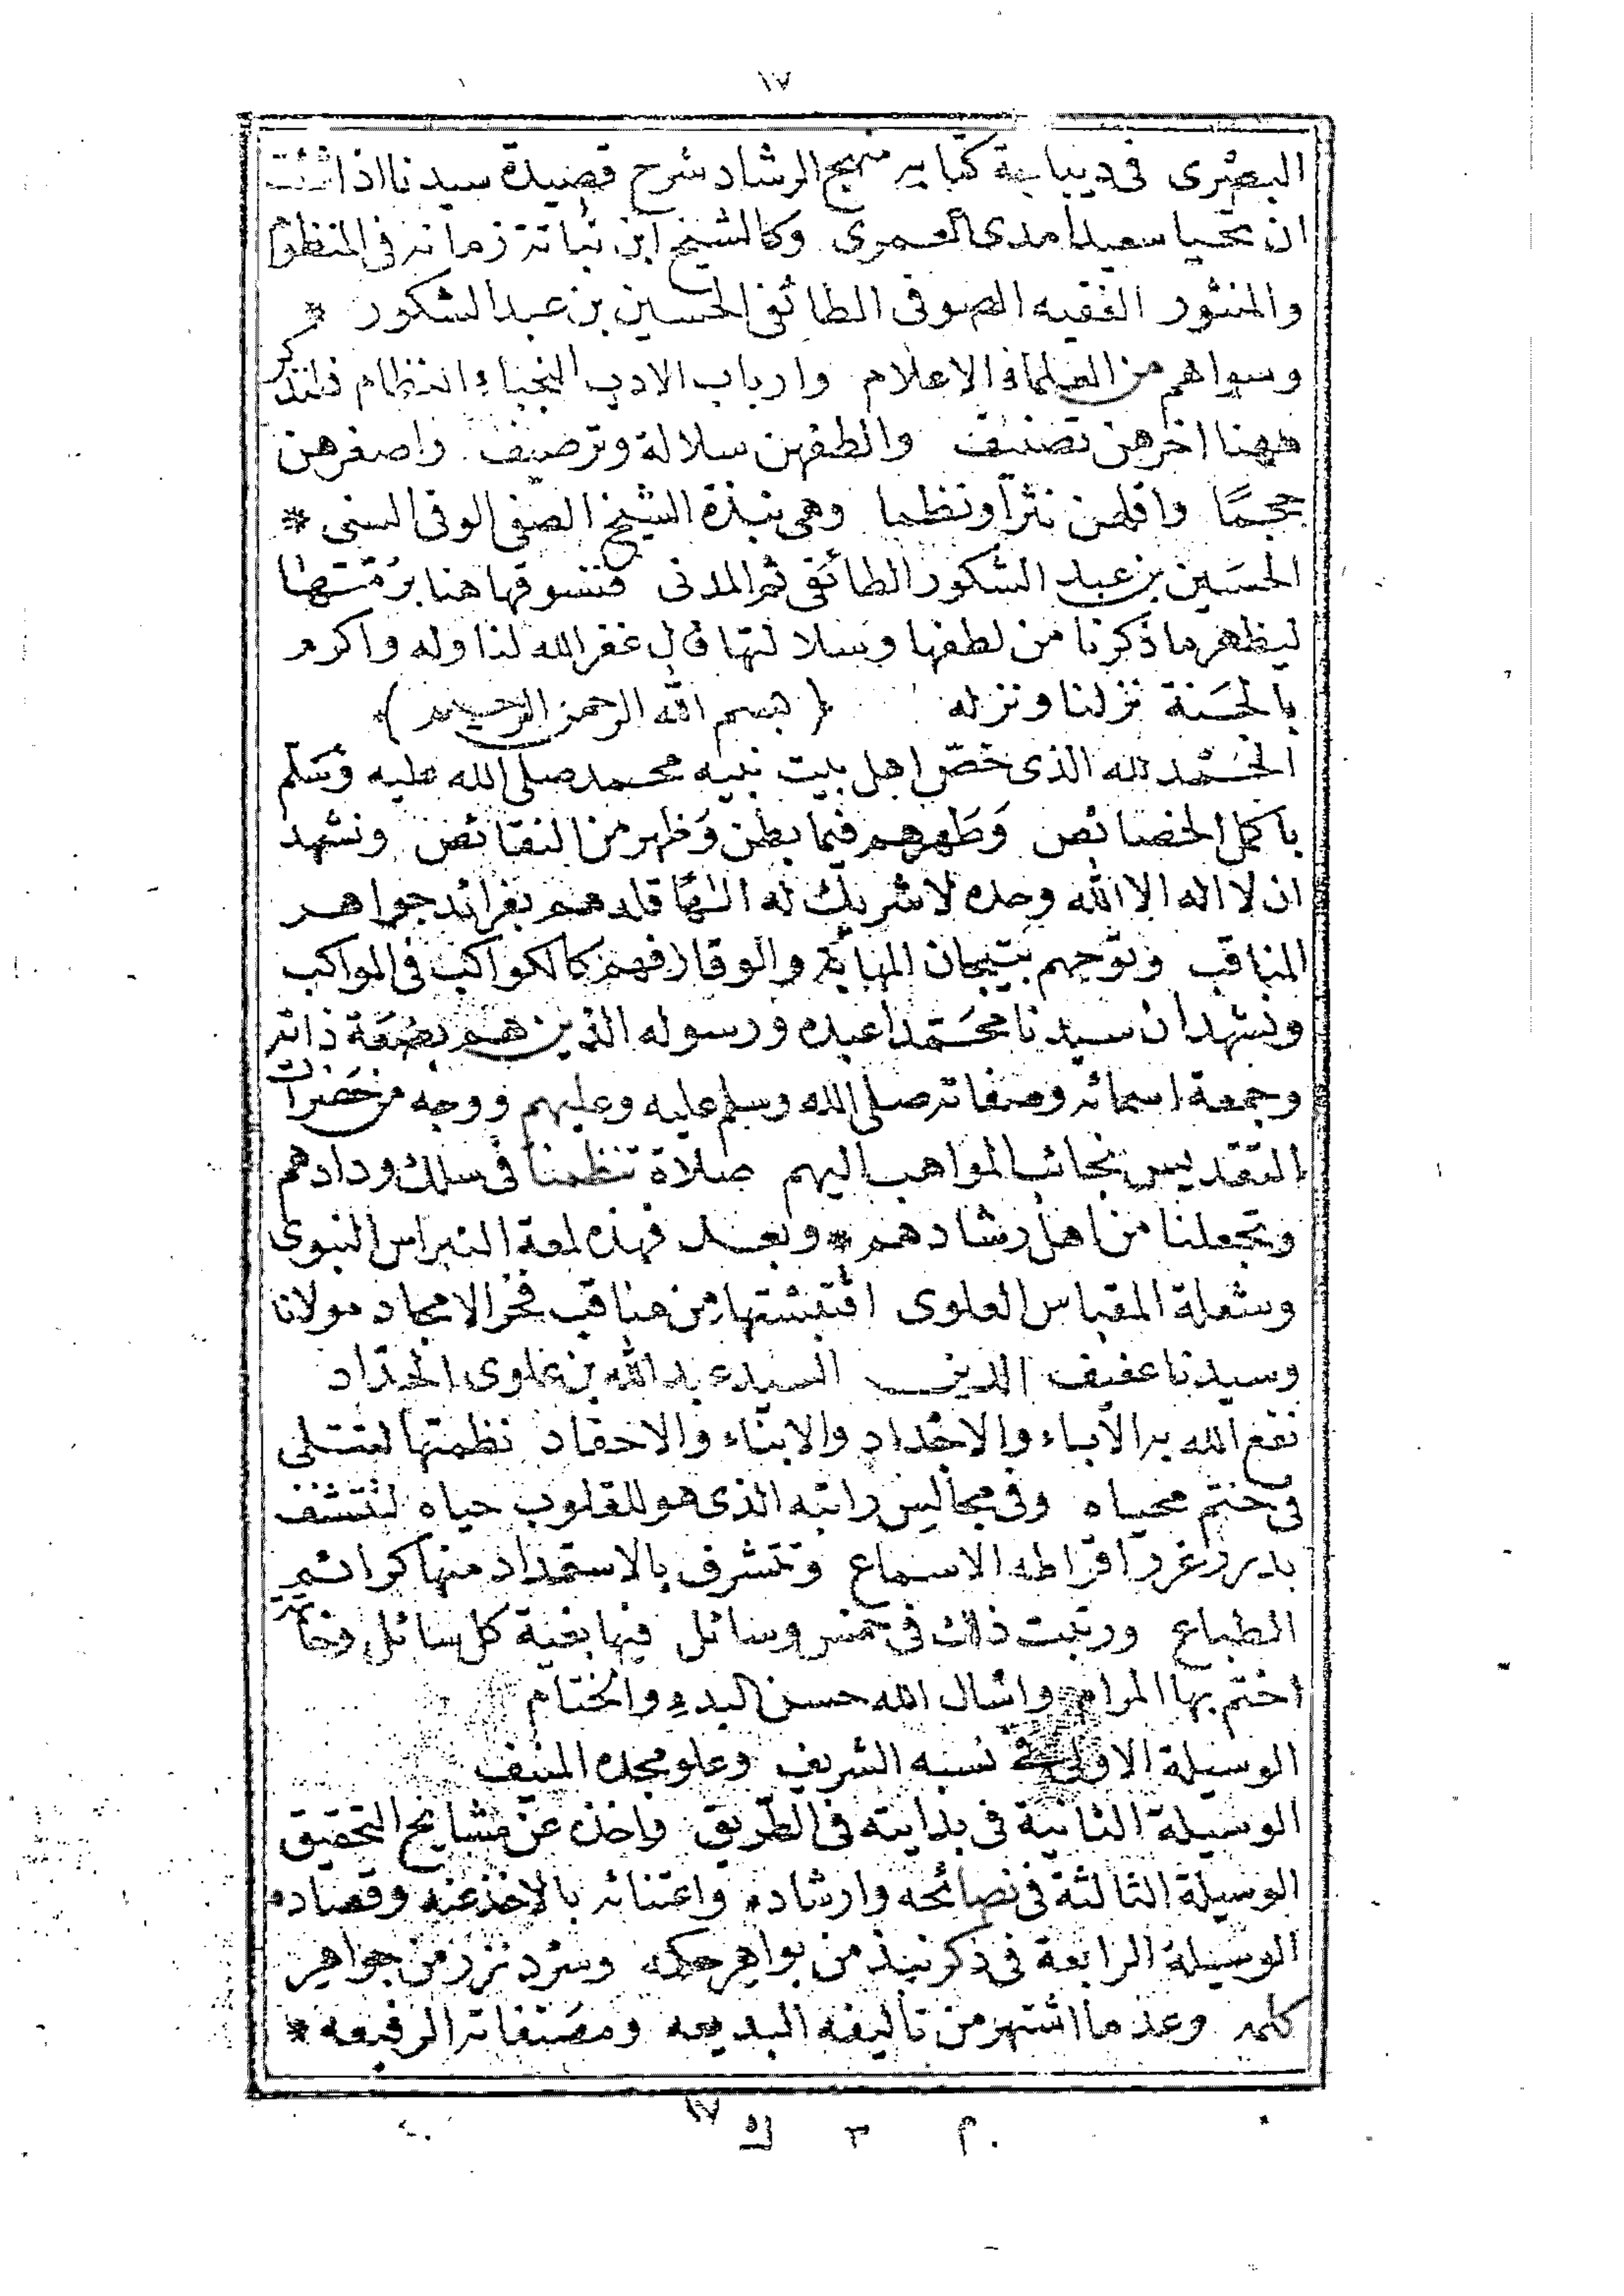 ١٧
البصرى فى ديباجة كتابه منهج الرشاد شرح قصيدة سيدنا اذا شئت
ان تحيا سعيدا مدى العمرى وكالشيخ ابن نباتة زمانه فى المنظوم
والمنثور الفقيه الصوفى الطائفى الحسين بن عبد الشكور *
وسواهم من العلماء الاعلام وارباب الادب النجباء النظام فلنذكر
ههنا اخرهن تصنيف والطفهن سلالة وترصيف واصغرهن
حجمًا واقلهن نثرًا ونظما وهى نبذة الشيخ الصفى الوفى السنى *
الحسين بن عبد الشكور الطائفى ثم المدنى فنسوقها هنا برُمّتها
ليظهر ما ذكرنا من لطفها وسلالتها قال غفر الله لنا وله واكرم
بالجنة نزلنا ونزله (بسم الله الرحمن الرحيم)
الحمد لله الذى خصّ اهل بيت نبيه محمد صلى الله عليه وسلم
باكمل الخصائص وَطهرهم فيما بطن وَظهر من النقائص ونشهد
ان لا اله الا الله وحده لا شريك له الٰهًا قلدهم بفرائد جواهر
المناقب وتوّجهم بتيجان المهابة والوقار فهم كالكواكب فى المواكب
ونشهد ان سيدنا محمّدا عبده ورسوله الذين هم بضعة ذاته
وجمعة اسمائه وصفاته صلى الله وسلم عليه وعليهم ووجه من حَضرات
التقديس نجائب المواهب اليهم صلاة تنظمنا فى سلك ودادهم
وتجعلنا من اهل رشادهم * وبعد فهذه لمعة النبراس النبوى
وشعلة المقباس العلوى اقتبستها من مناقب فخر الامجاد مولانا
وسيدنا عفيف الدين السيد عبد الله بن علوى الحدّاد
نفع الله به الآباء والاجداد والابناء والاحفاد نظمتها لتتلى
فى ختم محياه وفى مجالس راتبه الذى هو للقلوب حياه لتتشنف
بدرر غرر اقراطه الاسماع وتتشرف بالاستمداد منها كرائم
الطباع ورتبت ذلك فى خمس وسائل فيها بغية كل سائل وخاتمة
اختم بها المرام واسال الله حسن البدء والختام
الوسيلة الاولى فى نسبه الشريف وعلو مجده المنيف
الوسيلة الثانية فى بدايته فى الطريق واخذه عن مشايخ التحقيق
الوسيلة الثالثة فى نصائحه وارشاده واعتنائه بالاخذ عنه وقصاده
الوسيلة الرابعة فى ذكر نبذ من بواهر حكمه وسرد نزر من جواهر
كلمه وعد ما اشتهر من تأليفه البديعه ومصَنفاته الرفيعه *
١٧
م ٣ ك